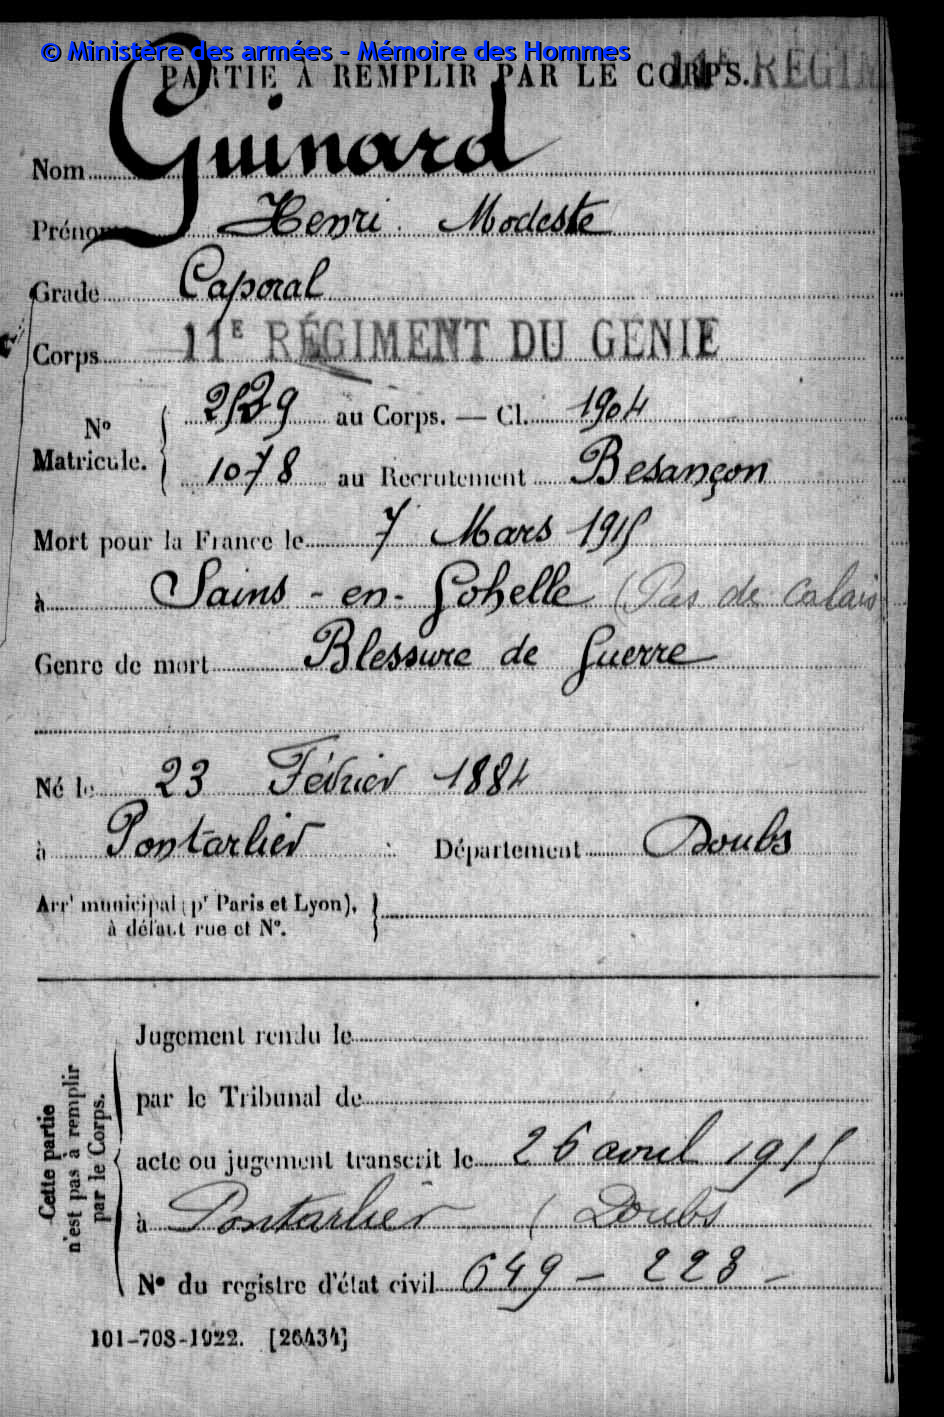 © Ministère des armées - Mémoire des Hommes
PARTIE À REMPLIR PAR LE CORPS.
11E RÉGIM
Nom Guinard
Prénoms Henri Modeste
Grade Caporal
Corps 11E RÉGIMENT DU GÉNIE
No Matricule. { au Corps. — Cl. 1904
1078 au Recrutement Besançon
Mort pour la France le 7 Mars 1915
à Sains-en-Gohelle (Pas de Calais
Genre de mort Blessure de Guerre
Né le 23 Février 1884
à Pontarlier Département Doubs
Arrt municipal (pr Paris et Lyon), }
à défaut rue et No.
Cette partie n'est pas à remplir par le Corps.
Jugement rendu le
par le Tribunal de
acte ou jugement transcrit le 26 avril 1915
à Pontarlier (Doubs
No du registre d'état civil 649 – 223 –
101-708-1922. [26434]